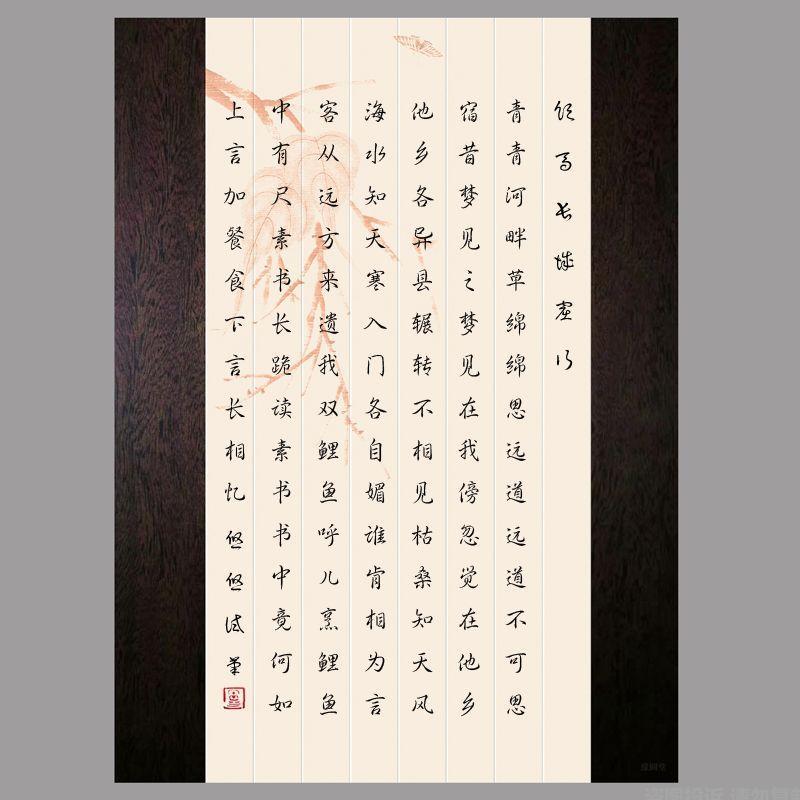 饮马长城窟行
青青河畔草绵绵思远道远道不可思
宿昔梦见之梦见在我傍忽觉在他乡
他乡各异县辗转不相见枯桑知天风
海水知天寒入门各自媚谁肯相为言
客从远方来遗我双鲤鱼呼儿烹鲤鱼
中有尺素书长跪读素书书中竟何如
上言加餐食下言长相忆悠悠试笔